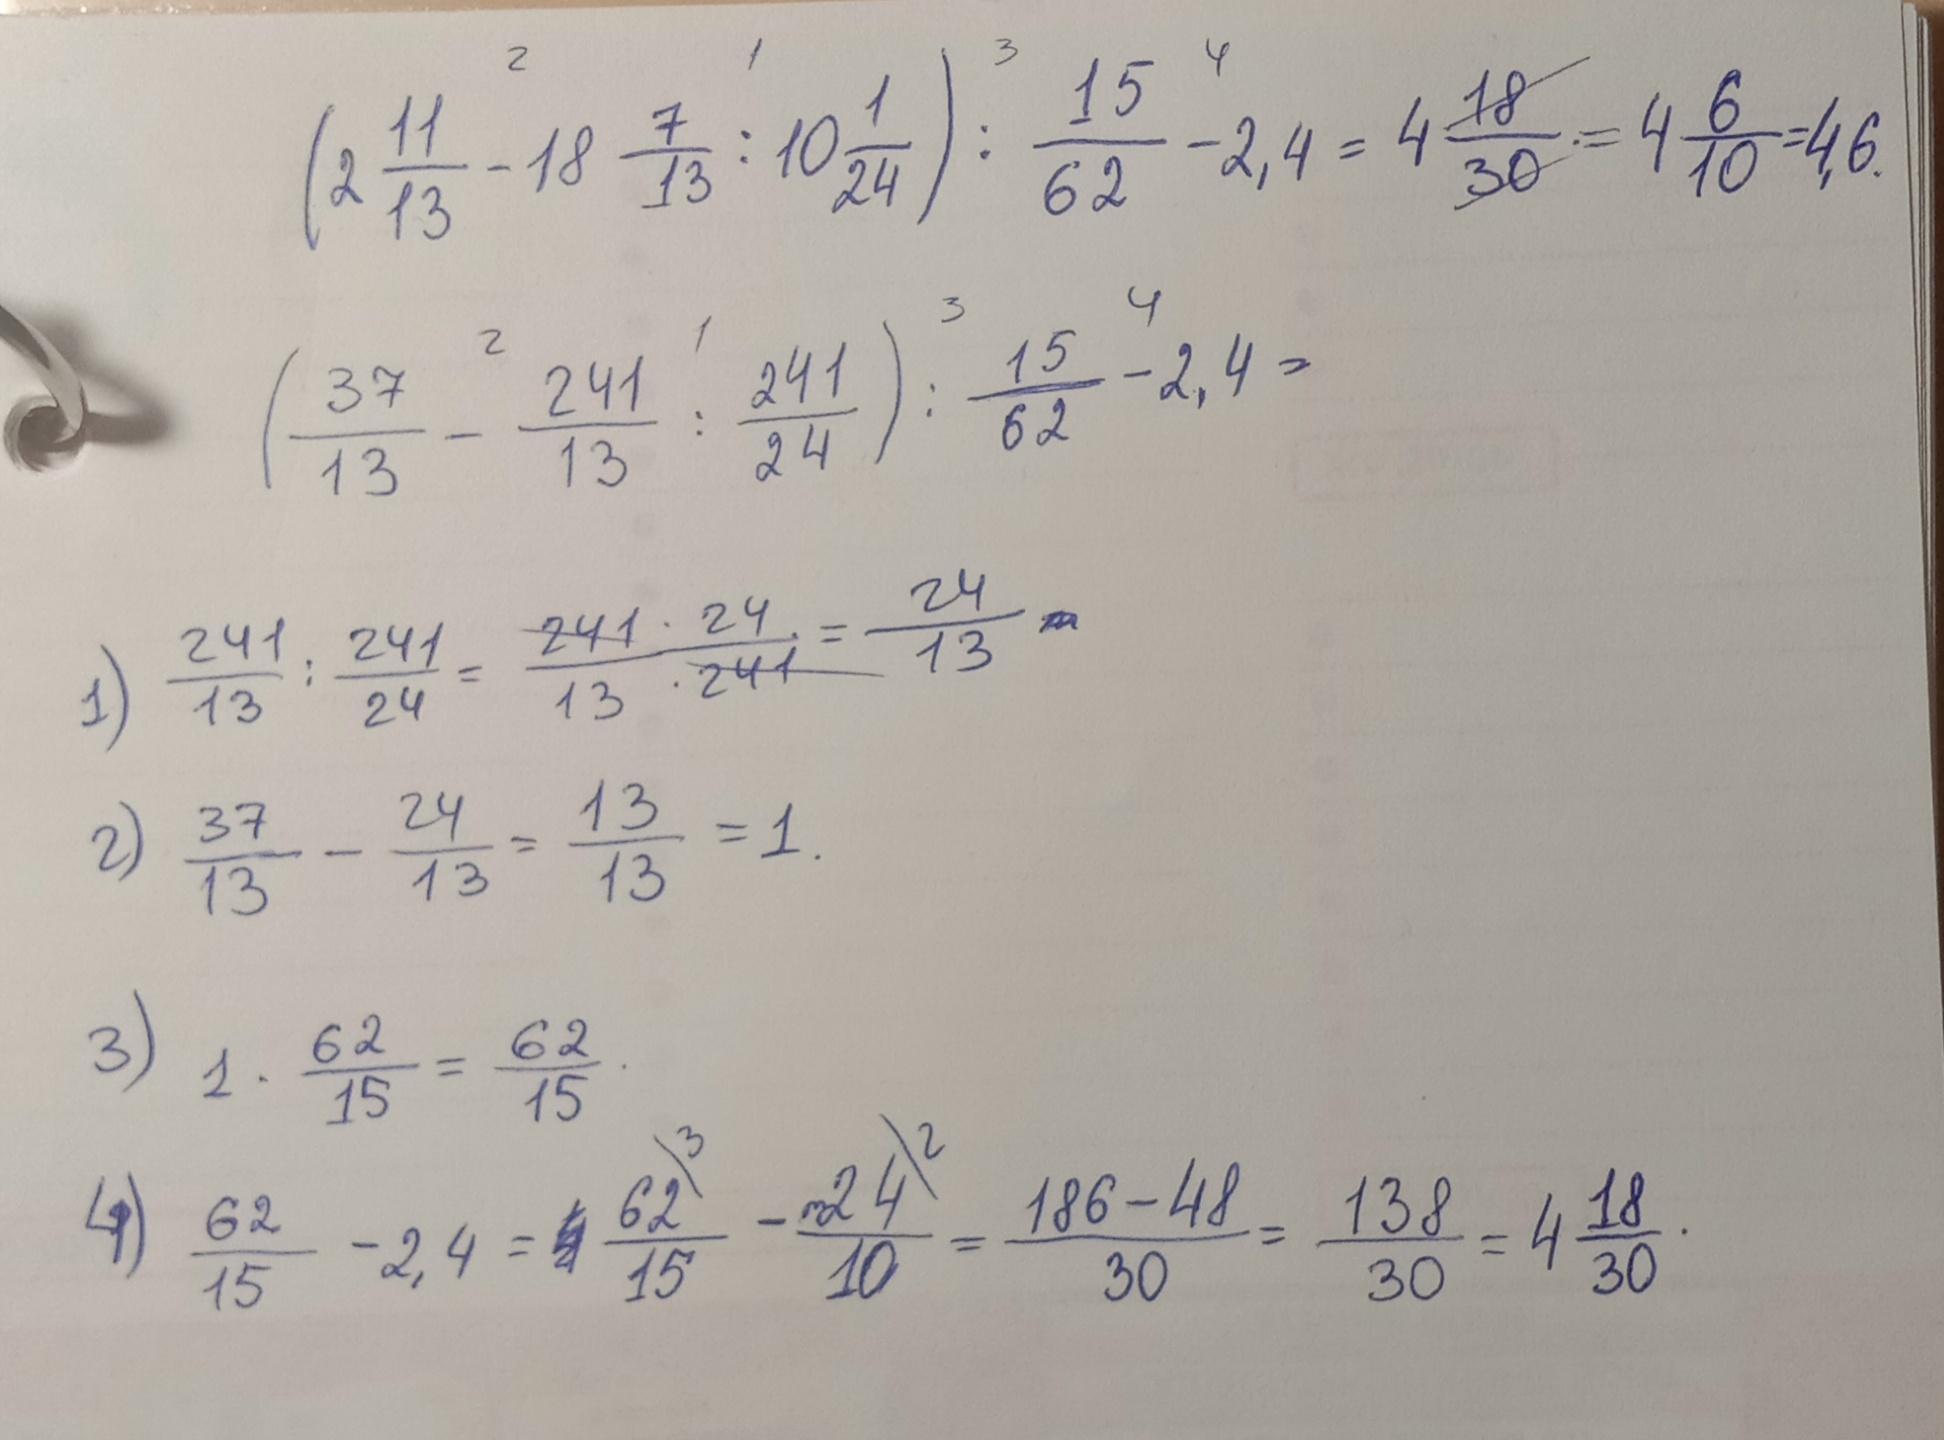 (2 11/13 - 18 7/13 : 10 1/24) : 15/62 - 2,4 = 4 18/30 = 4 6/10 = 4,6.
(37/13 - 241/13 : 241/24) : 15/62 - 2,4 =
1) 241/13 : 241/24 = 241 · 24/13 · 241 = 24/13
2) 37/13 - 24/13 = 13/13 = 1.
3) 1 · 62/15 = 62/15.
4) 62/15 - 2,4 = 62\3/15 - 24\2/10 = 186 - 48/30 = 138/30 = 4 18/30.